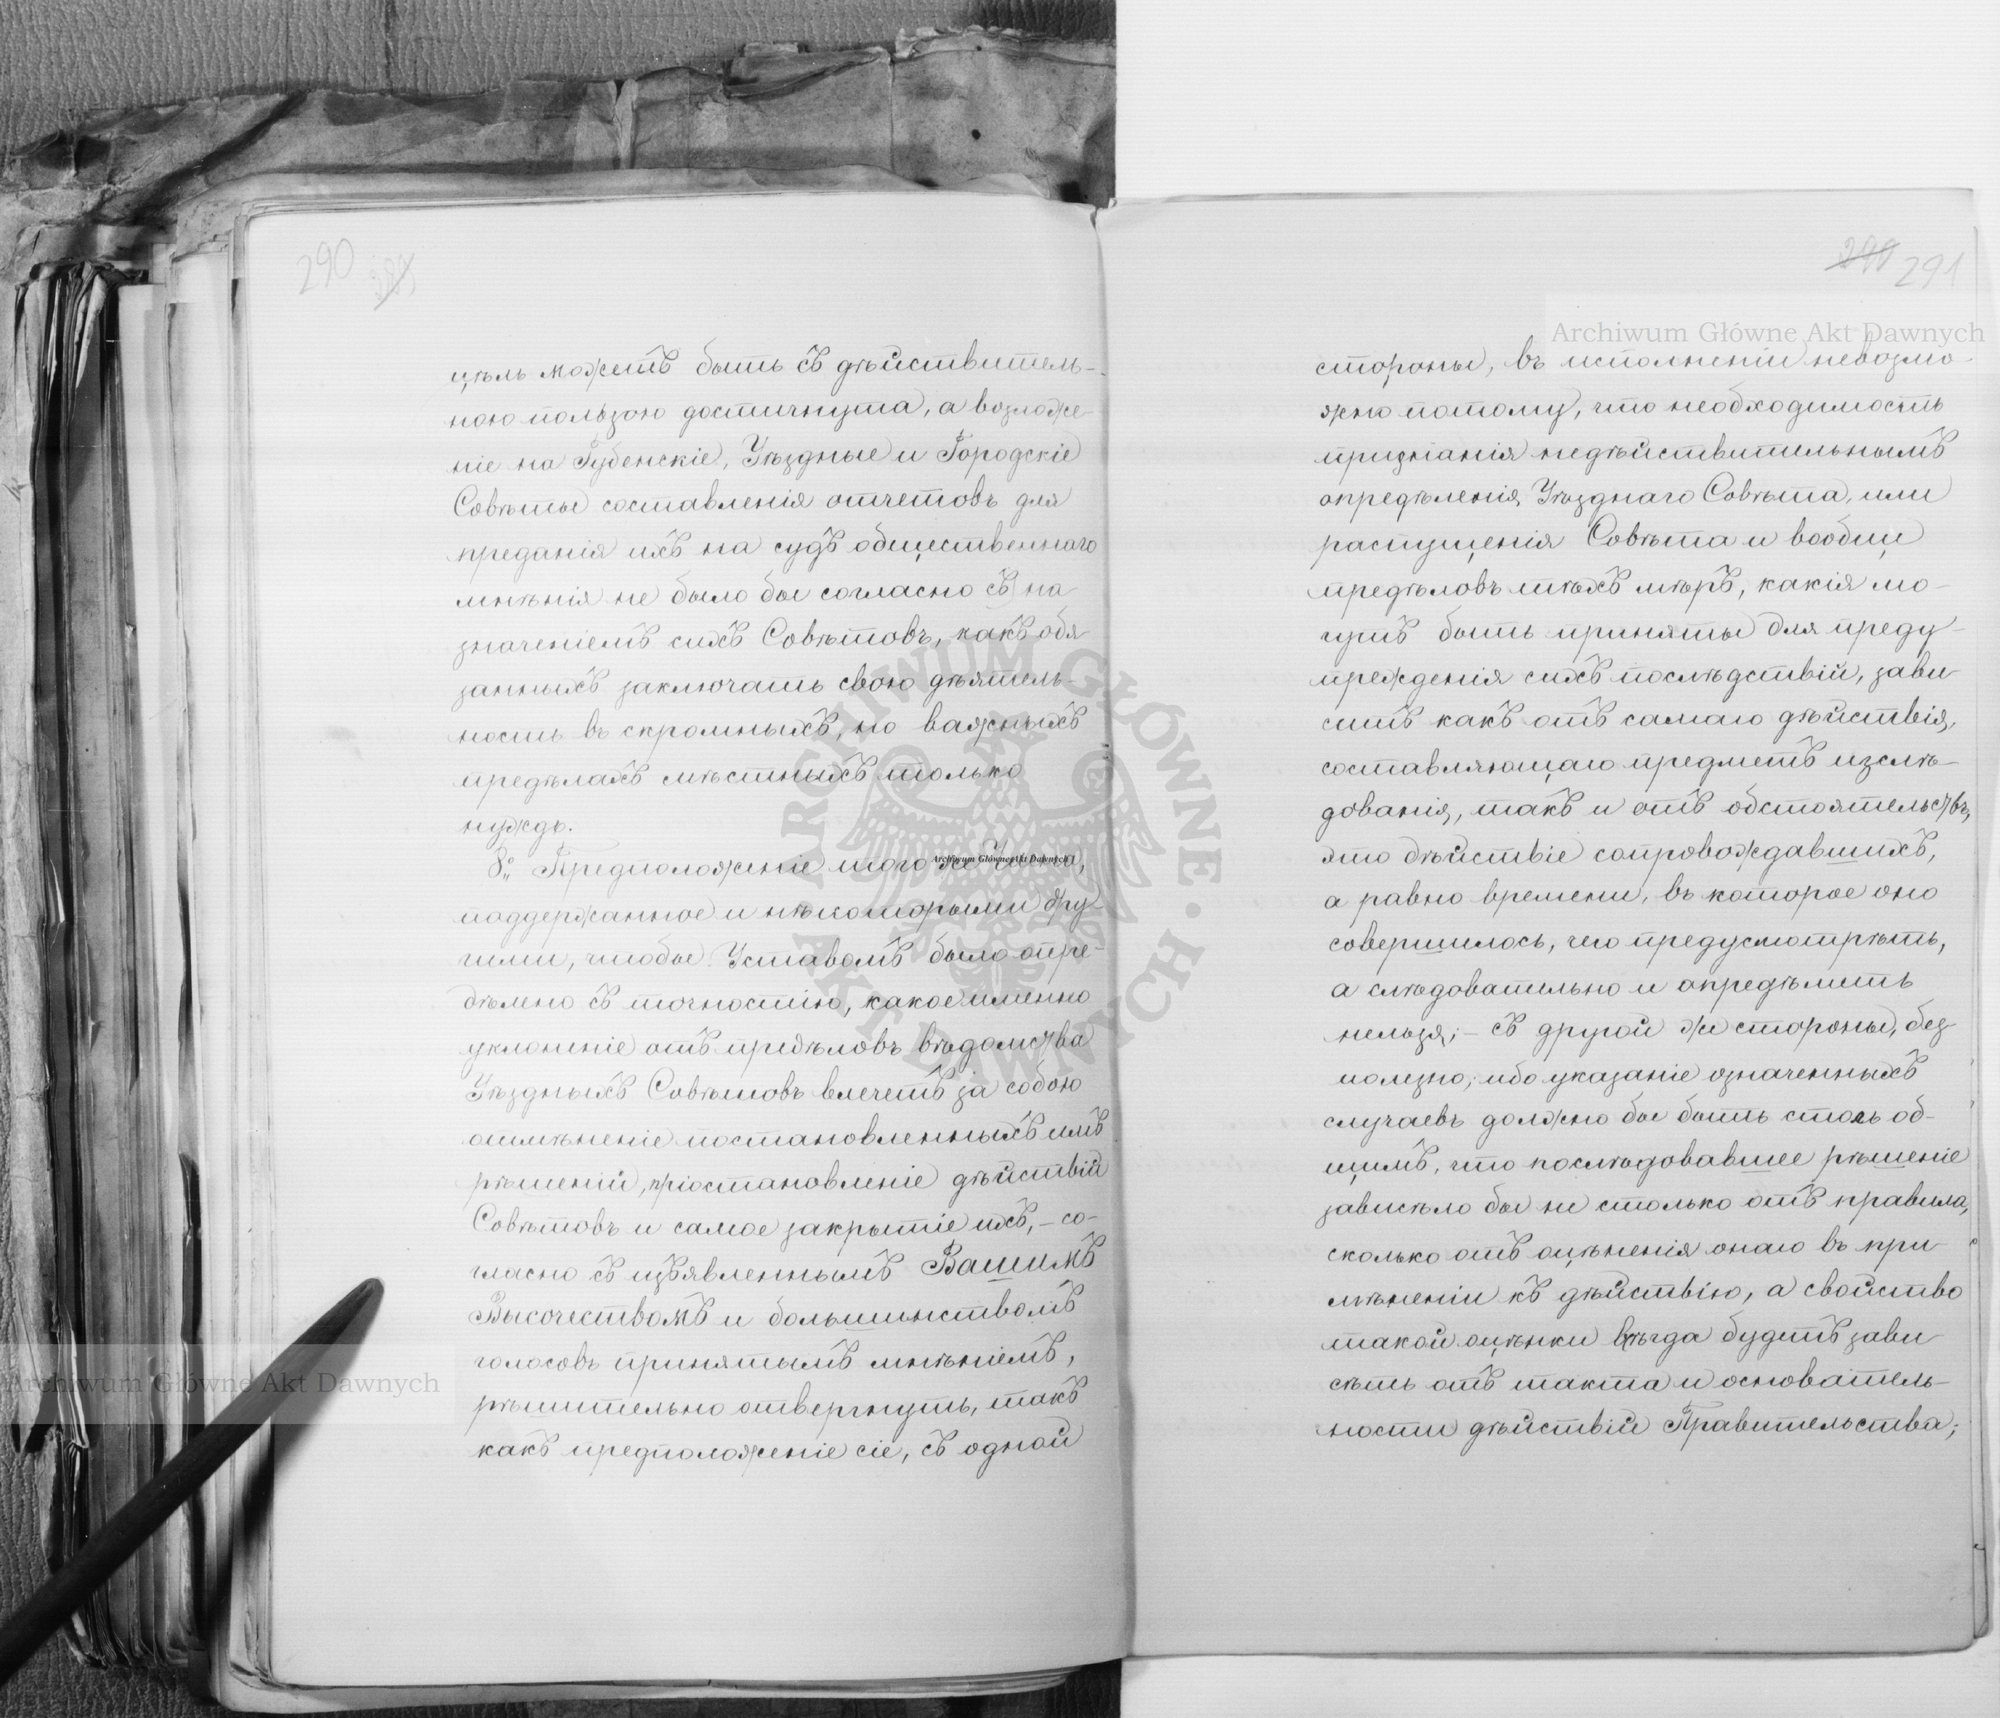 290
цѣль можетъ быть съ дѣйствитель-
ною пользою достигнута, а возложе-
ніе на Губенскіе, Уѣздные и Городскіе
Совѣты составленія отчетовъ для
преданія ихъ на судъ общественнаго
мнѣнія не было бы согласно съ на
значеніемъ сихъ Совѣтовъ, какъ обя
занныхъ заключать свою дѣятель-
ность въ скромныхъ, но важныхъ
предѣлахъ мѣстныхъ только
нуждъ.
8. Предположеніе того же
поддержанное и нѣкоторыми дру-
гими, чтобы Уставомъ было опре-
дѣлено съ точностію, какое именно
уклоненіе отъ предѣловъ вѣдомства
Уѣздныхъ Совѣтовъ влечетъ за собою
отмѣненіе постановленныхъ имъ
рѣшеній, пріостановленіе дѣйствій
Совѣтовъ и самое закрытіе ихъ, – со-
гласно съ изъявленнымъ Вашимъ
Высочествомъ и большинствомъ
голосовъ принятымъ мнѣніемъ,
рѣшительно отвергнуть, такъ
какъ предположеніе сіе, съ одной
291
стороны, въ исполненіи невозмо-
жно потому, что необходимость
признанія недѣйствительнымъ
опредѣленія Уѣзднаго Совѣта, или
распущенія Совѣта и вообще
предѣловъ тѣхъ мѣръ, какія мо-
гутъ быть приняты для преду-
прежденія сихъ послѣдствій, зави
ситъ какъ отъ самаго дѣйствія,
составляющаго предметъ изслѣ-
дованія, такъ и отъ обстоятельствъ,
это дѣйствіе сопровождавшихъ,
а равно времени, въ которое оно
совершилось, чего предусмотрѣть,
а слѣдовательно и опредѣлить
нельзя; – съ другой же стороны, без-
полезно; ибо указаніе означенныхъ
случаевъ должно бы быть столь об-
щимъ, что послѣдовавшее рѣшеніе
зависѣло бы не столько отъ правила,
сколько отъ оцѣненія онаго въ при
мѣненіи къ дѣйствію, а свойство
такой оцѣнки всегда будетъ зави
сѣть отъ такта и основатель-
ности дѣйствій Правительства;
Archiwum Główne Akt Dawnych
Archiwum Główne Akt Dawnych
Archiwum Główne Akt Dawnych
ARCHIWUM GŁÓWNE AKT DAWNYCH